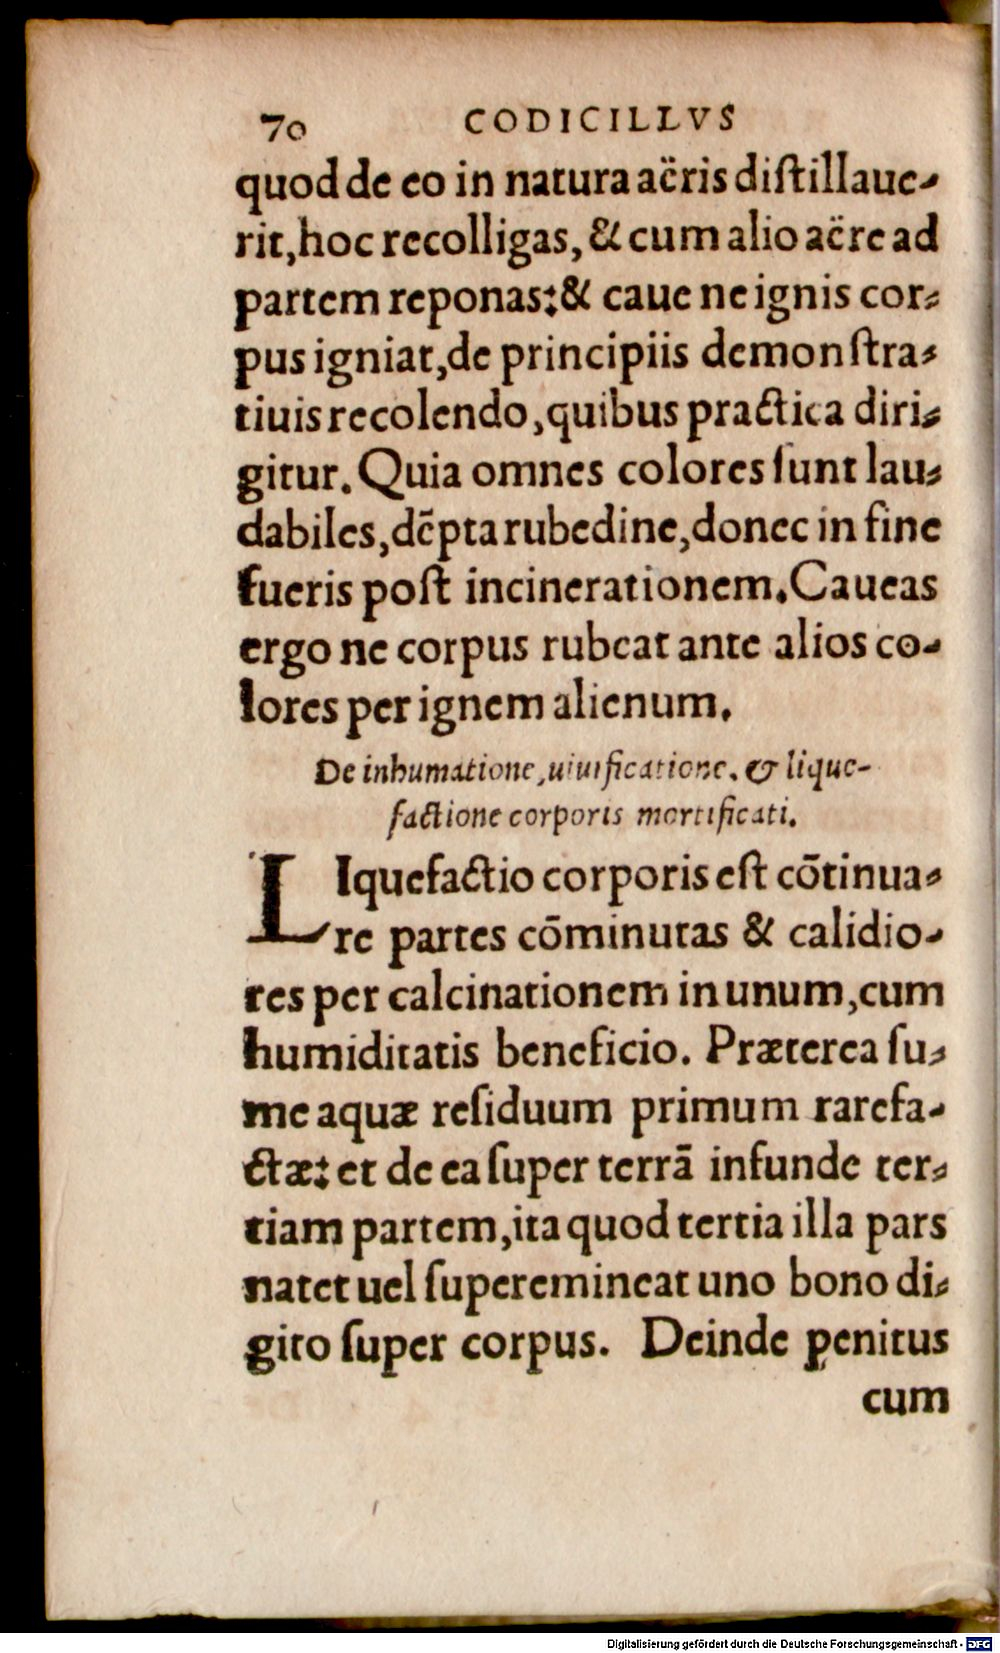 70 CODICILLVS
quod de eo in natura aëris distillaue-
rit, hoc recolligas, & cum alio aëre ad
partem reponas: & caue ne ignis cor-
pus igniat, de principiis demonstra-
tiuis recolendo, quibus practica diri-
gitur. Quia omnes colores sunt lau-
dabiles, dēpta rubedine, donec in fine
fueris post incinerationem. Caueas
ergo ne corpus rubeat ante alios co-
lores per ignem alienum.
De inhumatione, uiuificatione. & lique-
factione corporis mortificati.
LIquefactio corporis est cōtinua-
re partes cōminutas & calidio-
res per calcinationem in unum, cum
humiditatis beneficio. Præterea su-
me aquæ residuum primum rarefa-
ctæ: et de ea super terrā infunde ter-
tiam partem, ita quod tertia illa pars
natet uel superemineat uno bono di-
gito super corpus. Deinde penitus
cum
Digitalisierung gefördert durch die Deutsche Forschungsgemeinschaft - DFG